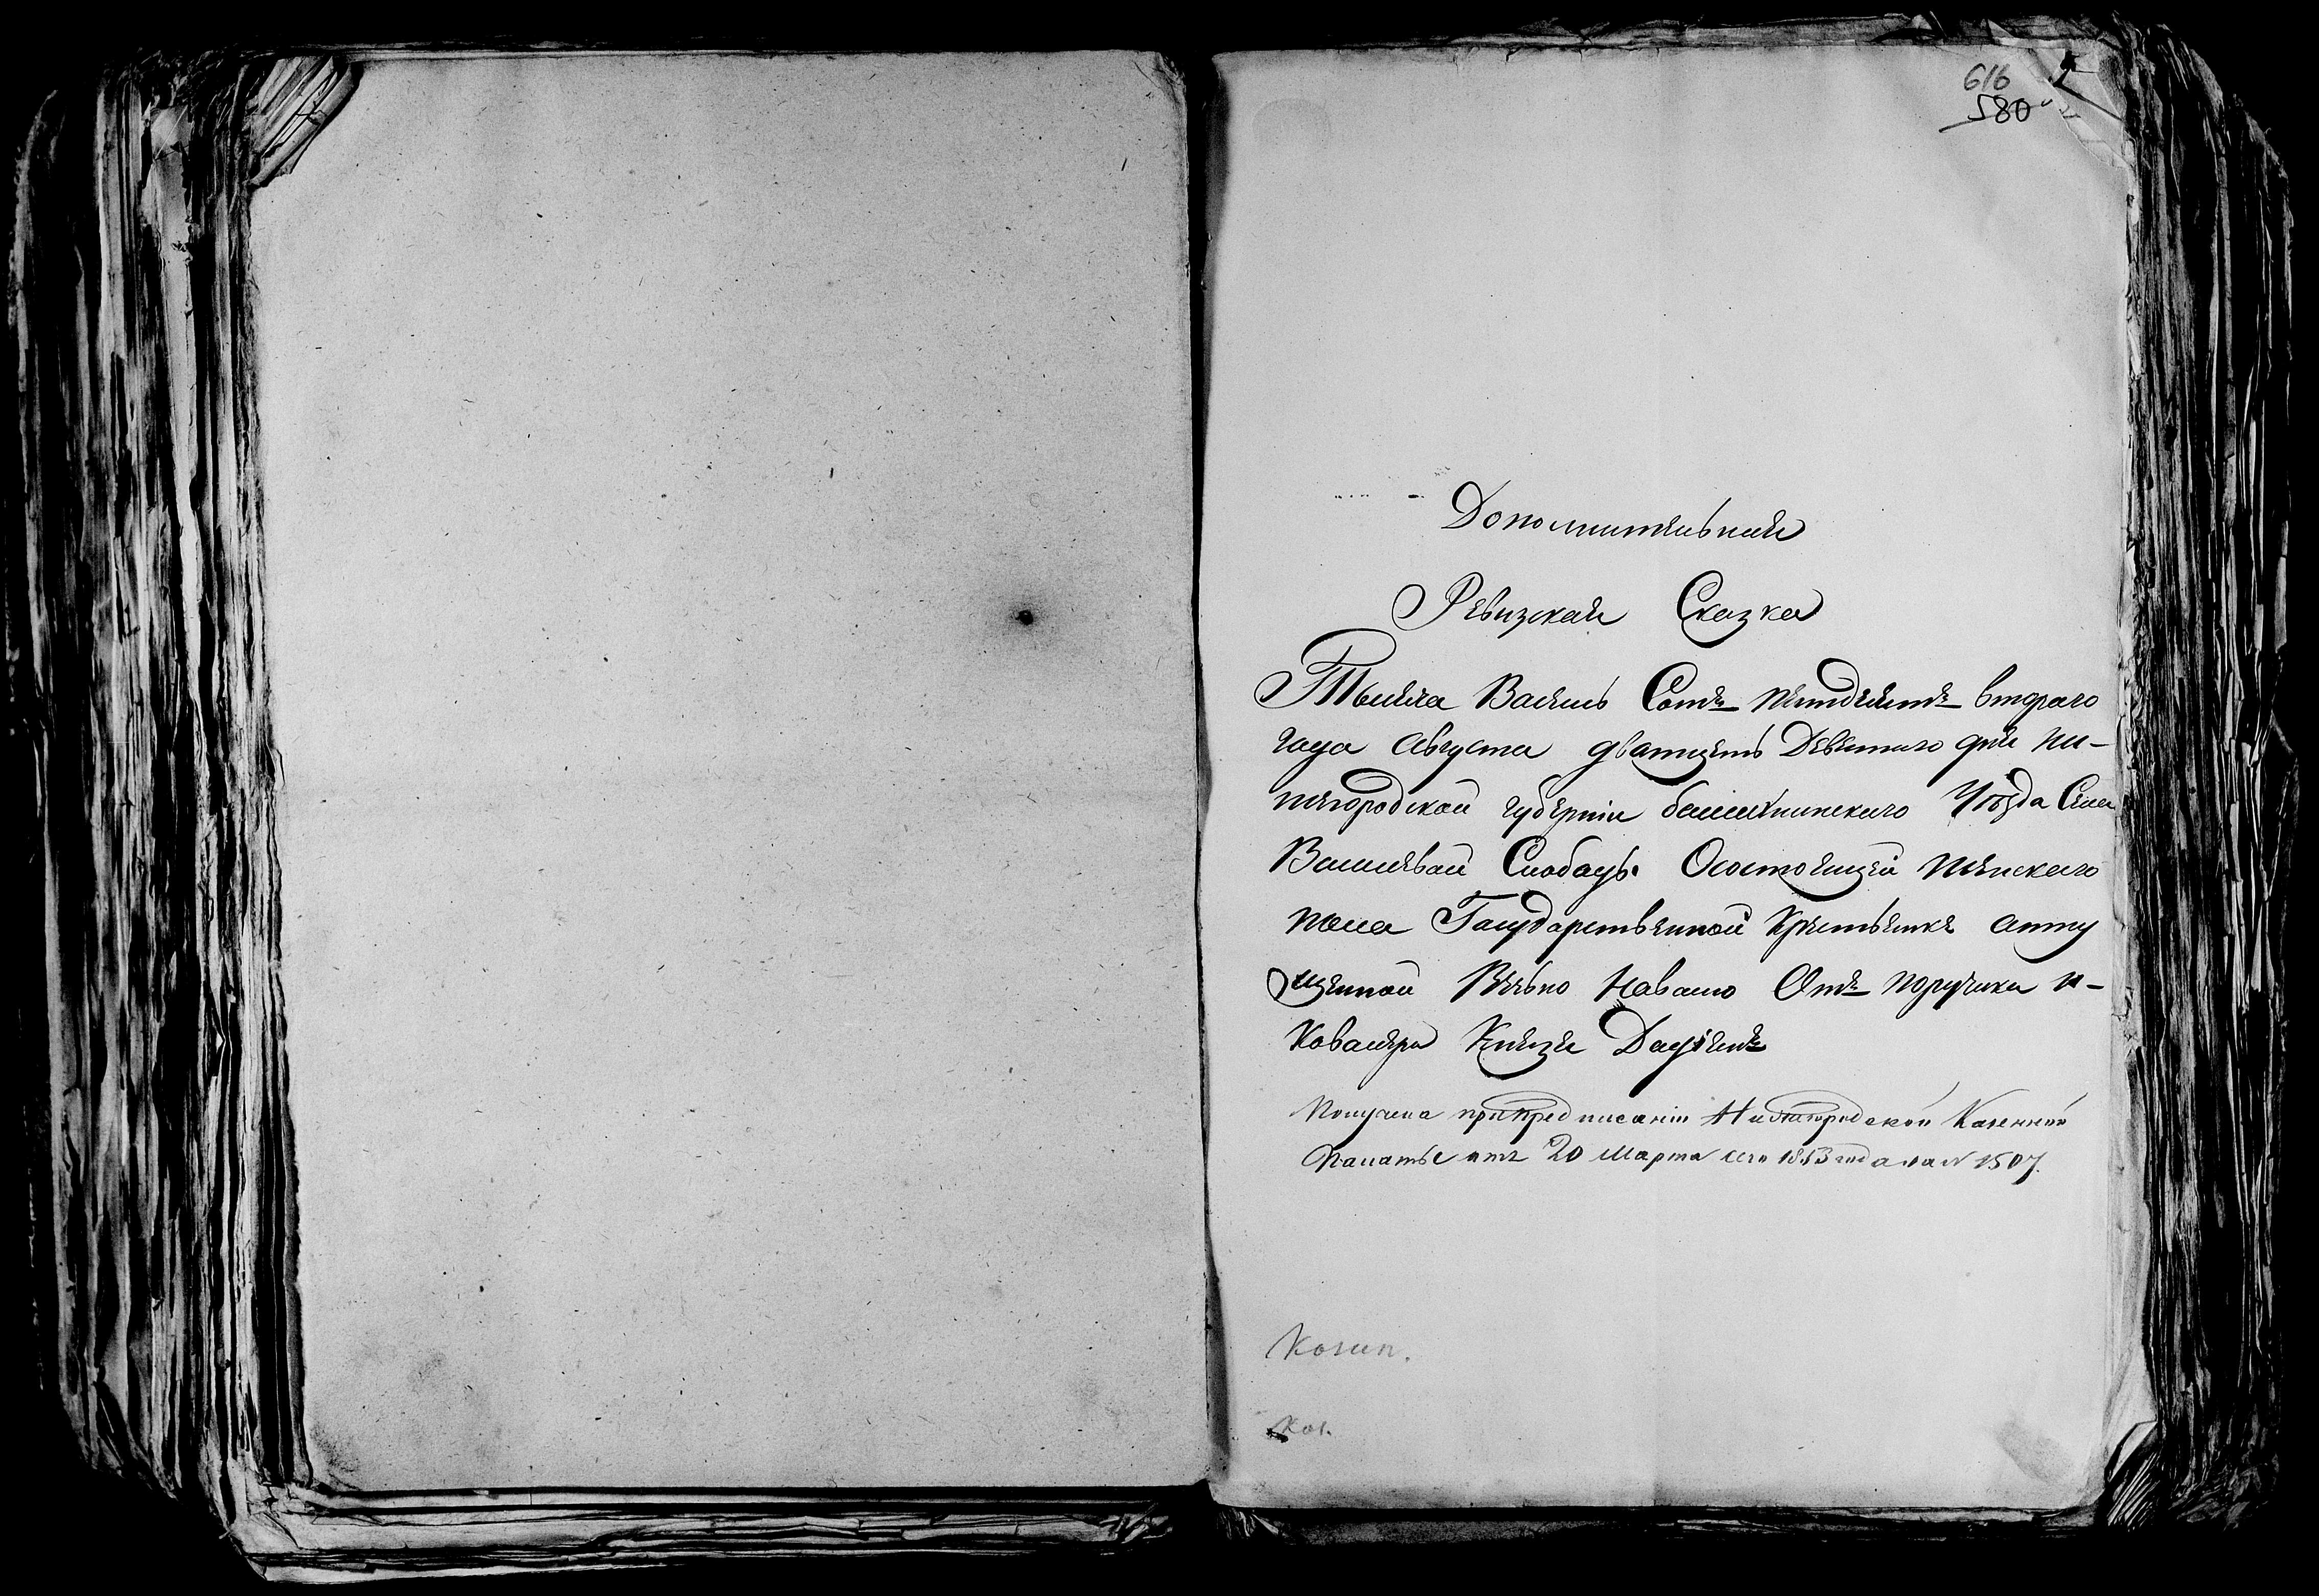 616
580
Дополнительная
Ревизская Сказка
Тысяча Восемь Сотъ пятдесятъ втораго
года Августа дватцеть Девятаго дня ни-
жегородской губернии Балахнинскаго Уѣзда Села
Василевой Слободы Осостоящей женскаго
пола Государственной Крестьянке отпу
щенной Вечьно Наволю Отъ поручика и
Ковалера Князя
Получена припредписании Нижегородской Казенной
Палаты отъ 20 Марта сего 1853 года за № 1507.
Копип.
Коп.